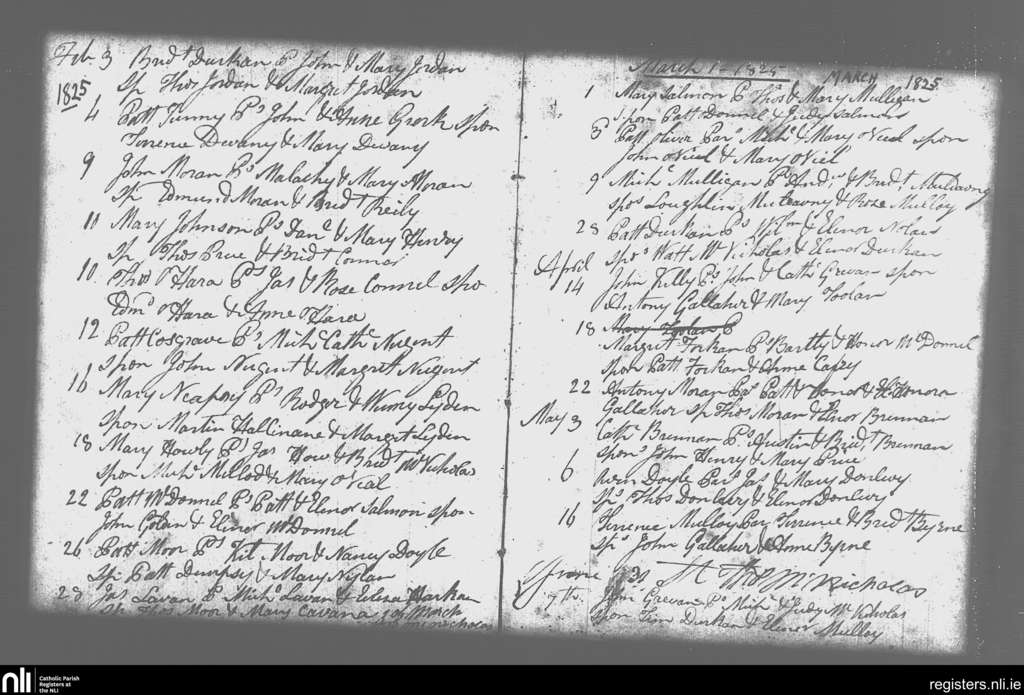 Feb. 3 Bridt Durkan Ps John & Mary Jordan
1825 Sp Thos Jordan & Margret Jordan
4 Patt Tunny Ps John & Anne Grork spon
Terrence Dewany & Mary Dewany
9 John Moran Ps Malachy & Mary Moran
Sp Edmund Moran & Bridt Reily
10 Mary Johnson Ps Danl & Mary
Sp Thos Prue & Bridt Connor
10. Thos O'Hara Ps Jas & Rose Connel spo
Edmd O'Hara & Anne O'Hara
12 Patt Cosgrave Ps Michl Cathe Nugent
Spon John Nugent & Margret Nugent
16 Mary Ps Rodger & Winny Lyden
Spon Martin Hallinane & Margret Lyden
18 Mary Howly Ps Jas How & Bridt McNicholas
spon Michl & Mary O'Neal
22 Patt McDonnel Ps Patt & Elenor Salmon spon
John Golan & Elinor McDonnel
26 Patt Moor Ps Kit Moor & Nancy Doyle
Sp Patt Dempsy & Mary Nylan
28 Jas Lavan Ps Michl Lavan & Harkan
Sp Thos Moor & Mary Cavana 1 of March
March 1 - 1825 MARCH 1825
1 Mary Salmon Ps Thos & Mary Mulligan
Spon Patt Donnel & Judy Salmon
3 Patt Oliver Pars Michl & Mary O'Neal spon
John O'Neal & Mary O'Neil
9 Michl Mulligan Ps & Bridt
spos Loughlin & Rose Mulloy
28 Patt Durkan Ps & Elenor Nolan
spos Watt McNicholas & Elenor Durkan
April
14 John Killy Ps John & Cathe Grevan spon
Antony Gallaher & Mary Toolan
18 Mary Toolan P
Margret Forkan Ps Bartly & Honor McDonnel
spon Patt Forkan & Anne Casey
22 Antony Moran Pas Patt & Honora
Gallaher sp Thos Moran & Brennan
May 3 Cathe Brennan Ps Austin & Bridt Brennan
spons John Henry & Mary Prue
6 Doyle Pars Jas & Mary Donlevy
Sps Thos Donlevy & Elenor Donlevy
16 Terrence Mulloy Par Terrence & Bridt Byrne
Sps John Gallaher & Anne Byrne
31 Thos McNicholas
June 7th. John Grevan Ps Michl & Judy McNicholas
spon Tim Durkan & Elenor Mulloy
nli
Catholic Parish
Registers at
the NLI
registers.nli.ie